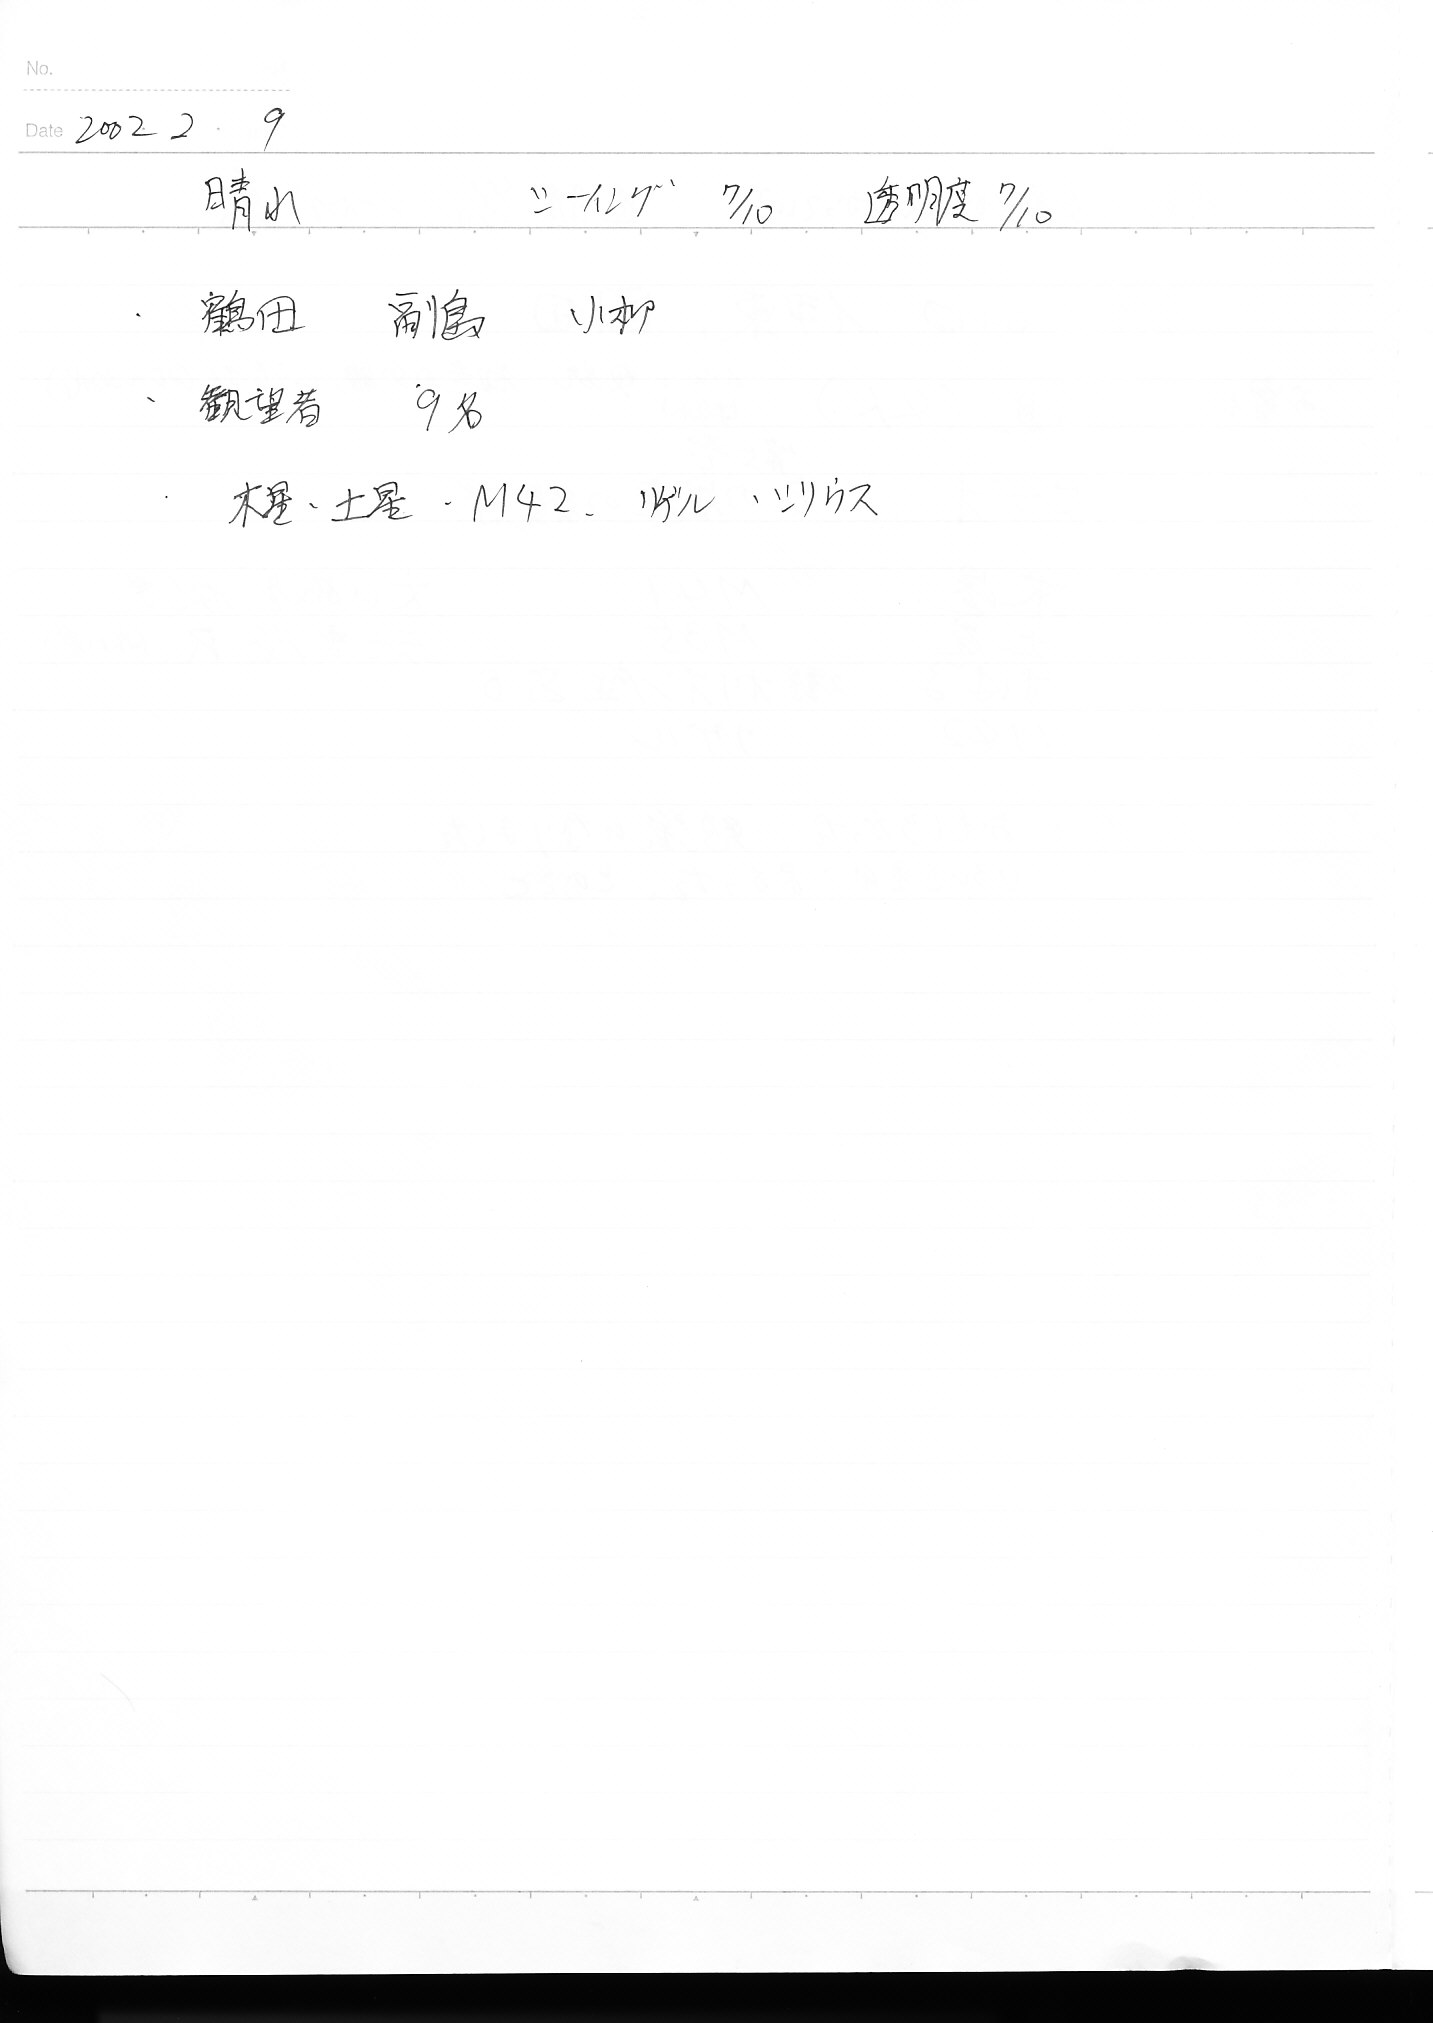 No.
Date 2002 2 9
晴れ シーイング 7/10 透明度 7/10
・ 鶴田 副島 小柳
・ 観望者 9名
・ 木星・土星・M42、リゲル、シリウス